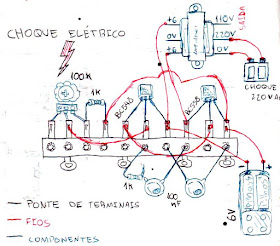 CHOQUE ELÉTRICO
+6 110V
0V 220V
+6 0V
SAÍDA
100K
1K
BC548
BC558
CHOQUE
220VAC
1K
100
NF
6V
— PONTE DE TERMINAIS
— FIOS
— COMPONENTES